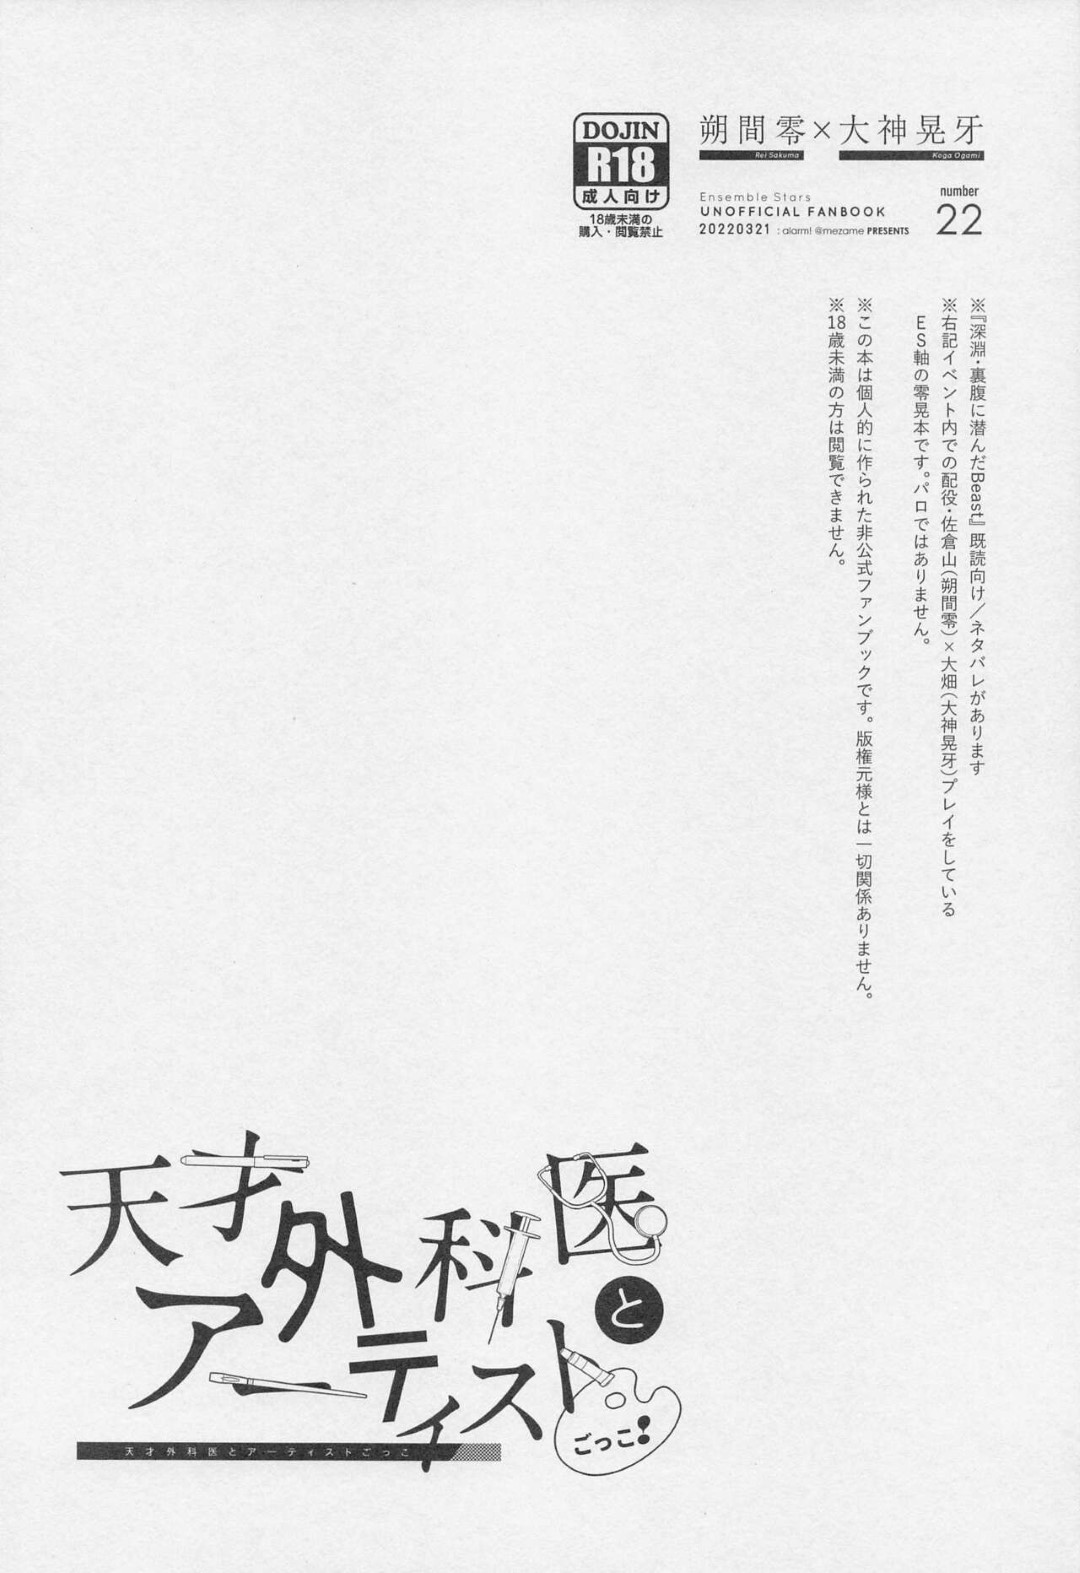 朔間零×大神晃牙
Rei Sakuma
Koga Ogami
DOJIN
R18
成人向け
18歳未満の
購入・閲覧禁止
Ensemble Stars
UNOFFICIAL FANBOOK
20220321 : alarm! @mezame PRESENTS
number
22
※『深淵・裏腹に潜んだBeast』既読向け／ネタバレがあります
※右記イベント内での配役・佐倉山(朔間零)×大畑(大神晃牙)プレイをしている
ES軸の零晃本です。パロではありません。
※この本は個人的に作られた非公式ファンブックです。版権元様とは一切関係ありません。
※18歳未満の方は閲覧できません。
天才外科医と
アーティスト
ごっこ!
天才外科医とアーティストごっこ